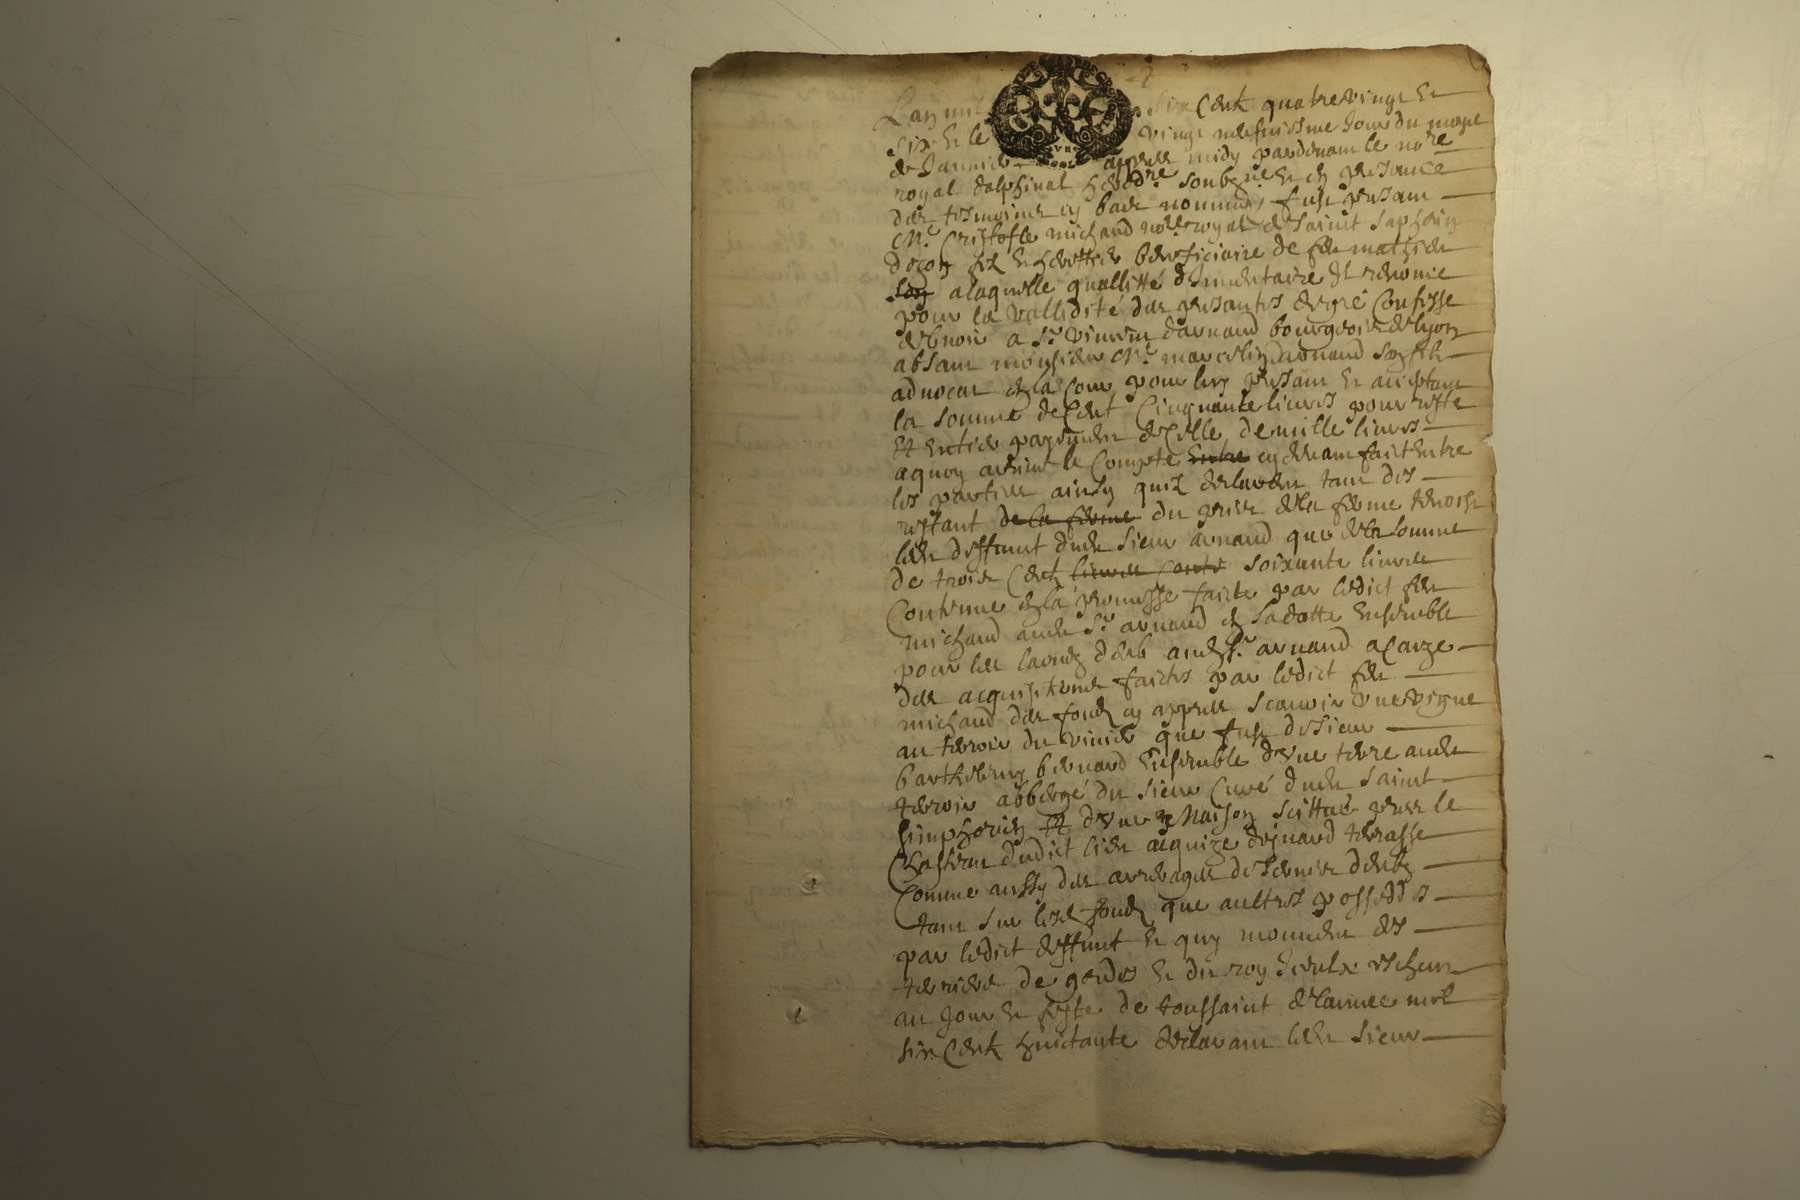 Lan mil six Cent quatre vingt Et
six Et le vingt neufviesme Jour du moys
de Janvier appres midy pardevant le nore
royal dalphinal heredre soubzne Et en presance
des tesmoins cy bas nommes fust presant
Me Cristofle michaud nore royal de saint saphorin
dozon filz Et herittier beneficiaire de feu mathieu
a laquelle quallitté dinventaire Il renonce
pour la vallidité des presantes de gré Confesse
debvoir a Sr vincent darnaud bourgeois de lyon
absant monsieur Me marcelin darnaud son filz
advocat en la Cour pour luy presant Et acceptant
la somme de Cent Cinquante livres pour reste
Et Entier payement de Celle de mille livres
a quoy revint le Compte Entre cy devant fait Entre
les parties ainsy quil declarent tant des
restant de la ferme du prix de la ferme
ledit deffunt dudit sieur arnaud que de la somme
de trois Cent livres soixante livres
Contenue en la promesse faicte par ledict feu
michaud audit Sr arnaud Ensemble
pour les laoudz deub audit Sr arnaud a Cauze
des acquisitions faictes par ledict feu
michaud des fondz cy appres scavoir Une vigne
au terroir du vivier que fust de sieur
barthelemy bernard Ensemble dUne terre audit
terroir abbergé du sieur Curé dudit saint
simphorien Et dUne Maison scittué pres le
Chasteau dudict lieu acquize terrasse
Comme aussy des arrerages de servis deubz
tant sur lesd fondz que aultres possedés
par ledict deffunt Et quy mouvent des
terriers de Et du roy Iceulx escheus
au Jour Et feste de toussaint de lannee mil
six Cent huictante declarant ledit sieur